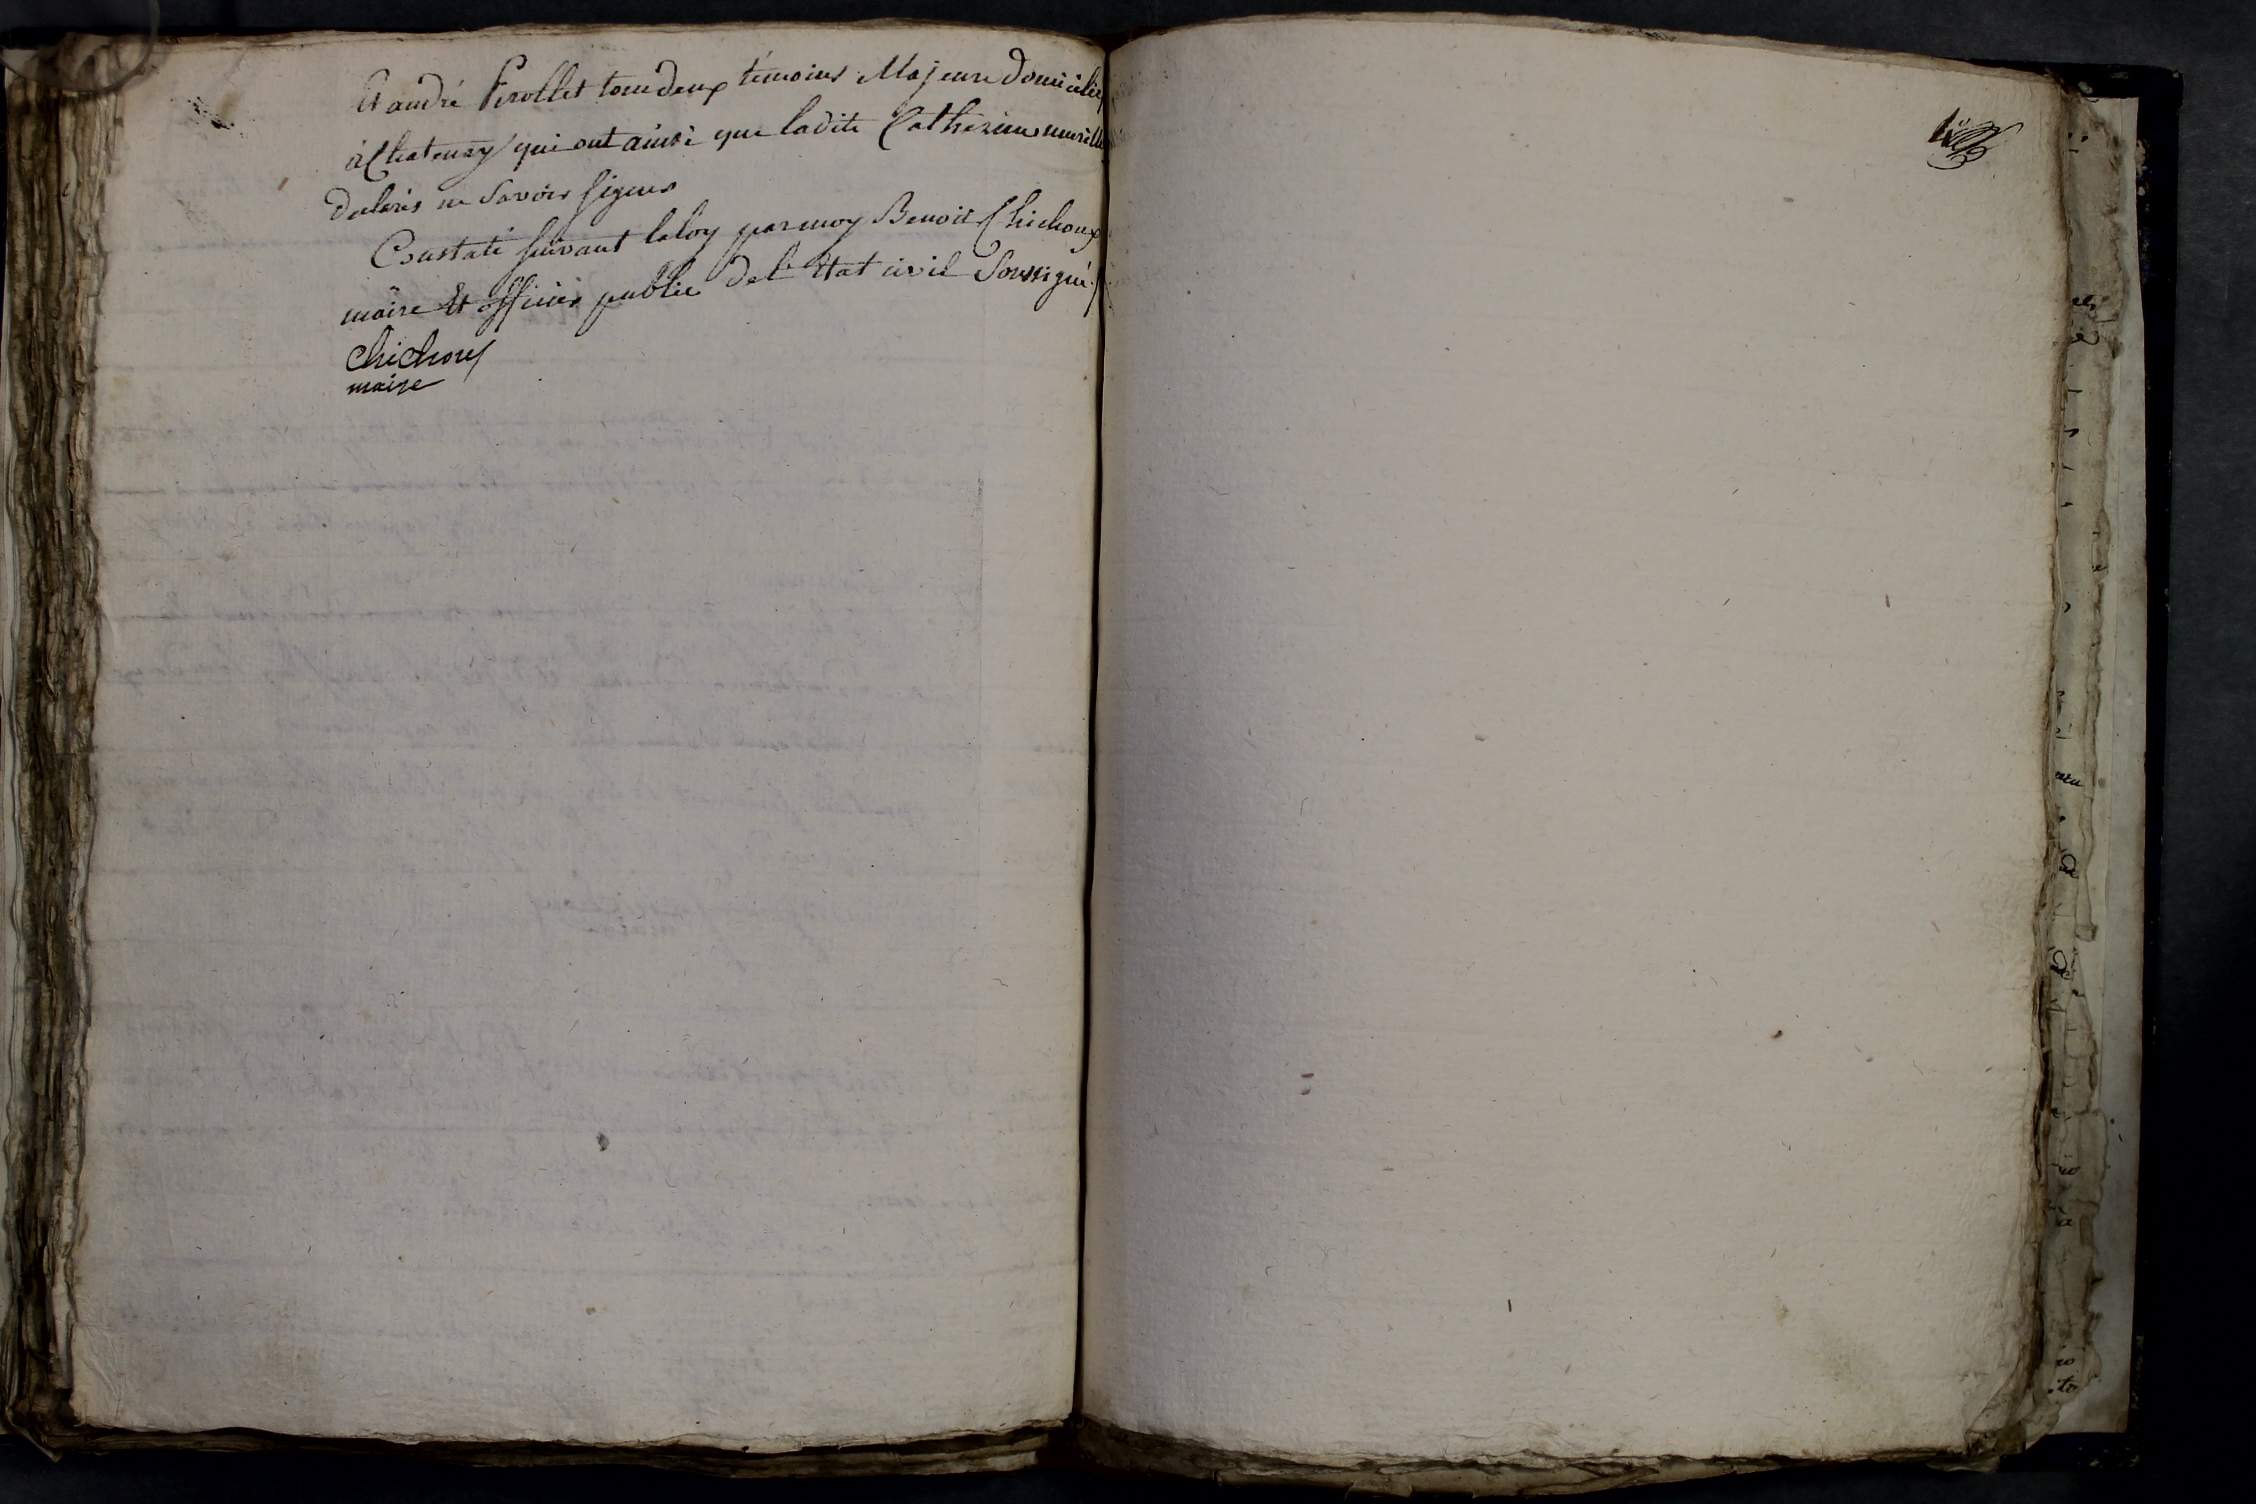 Et andré Perollet tous deux témoins Majeure domicilies
à Chatenay qui ont ainsi que ladite Catherine
déclarés ne Savoir signer
Constaté suivant la loy par moy Benoit Chichoux
maire Et officier public de l'Etat civil Soussigné
Chichoux
maire